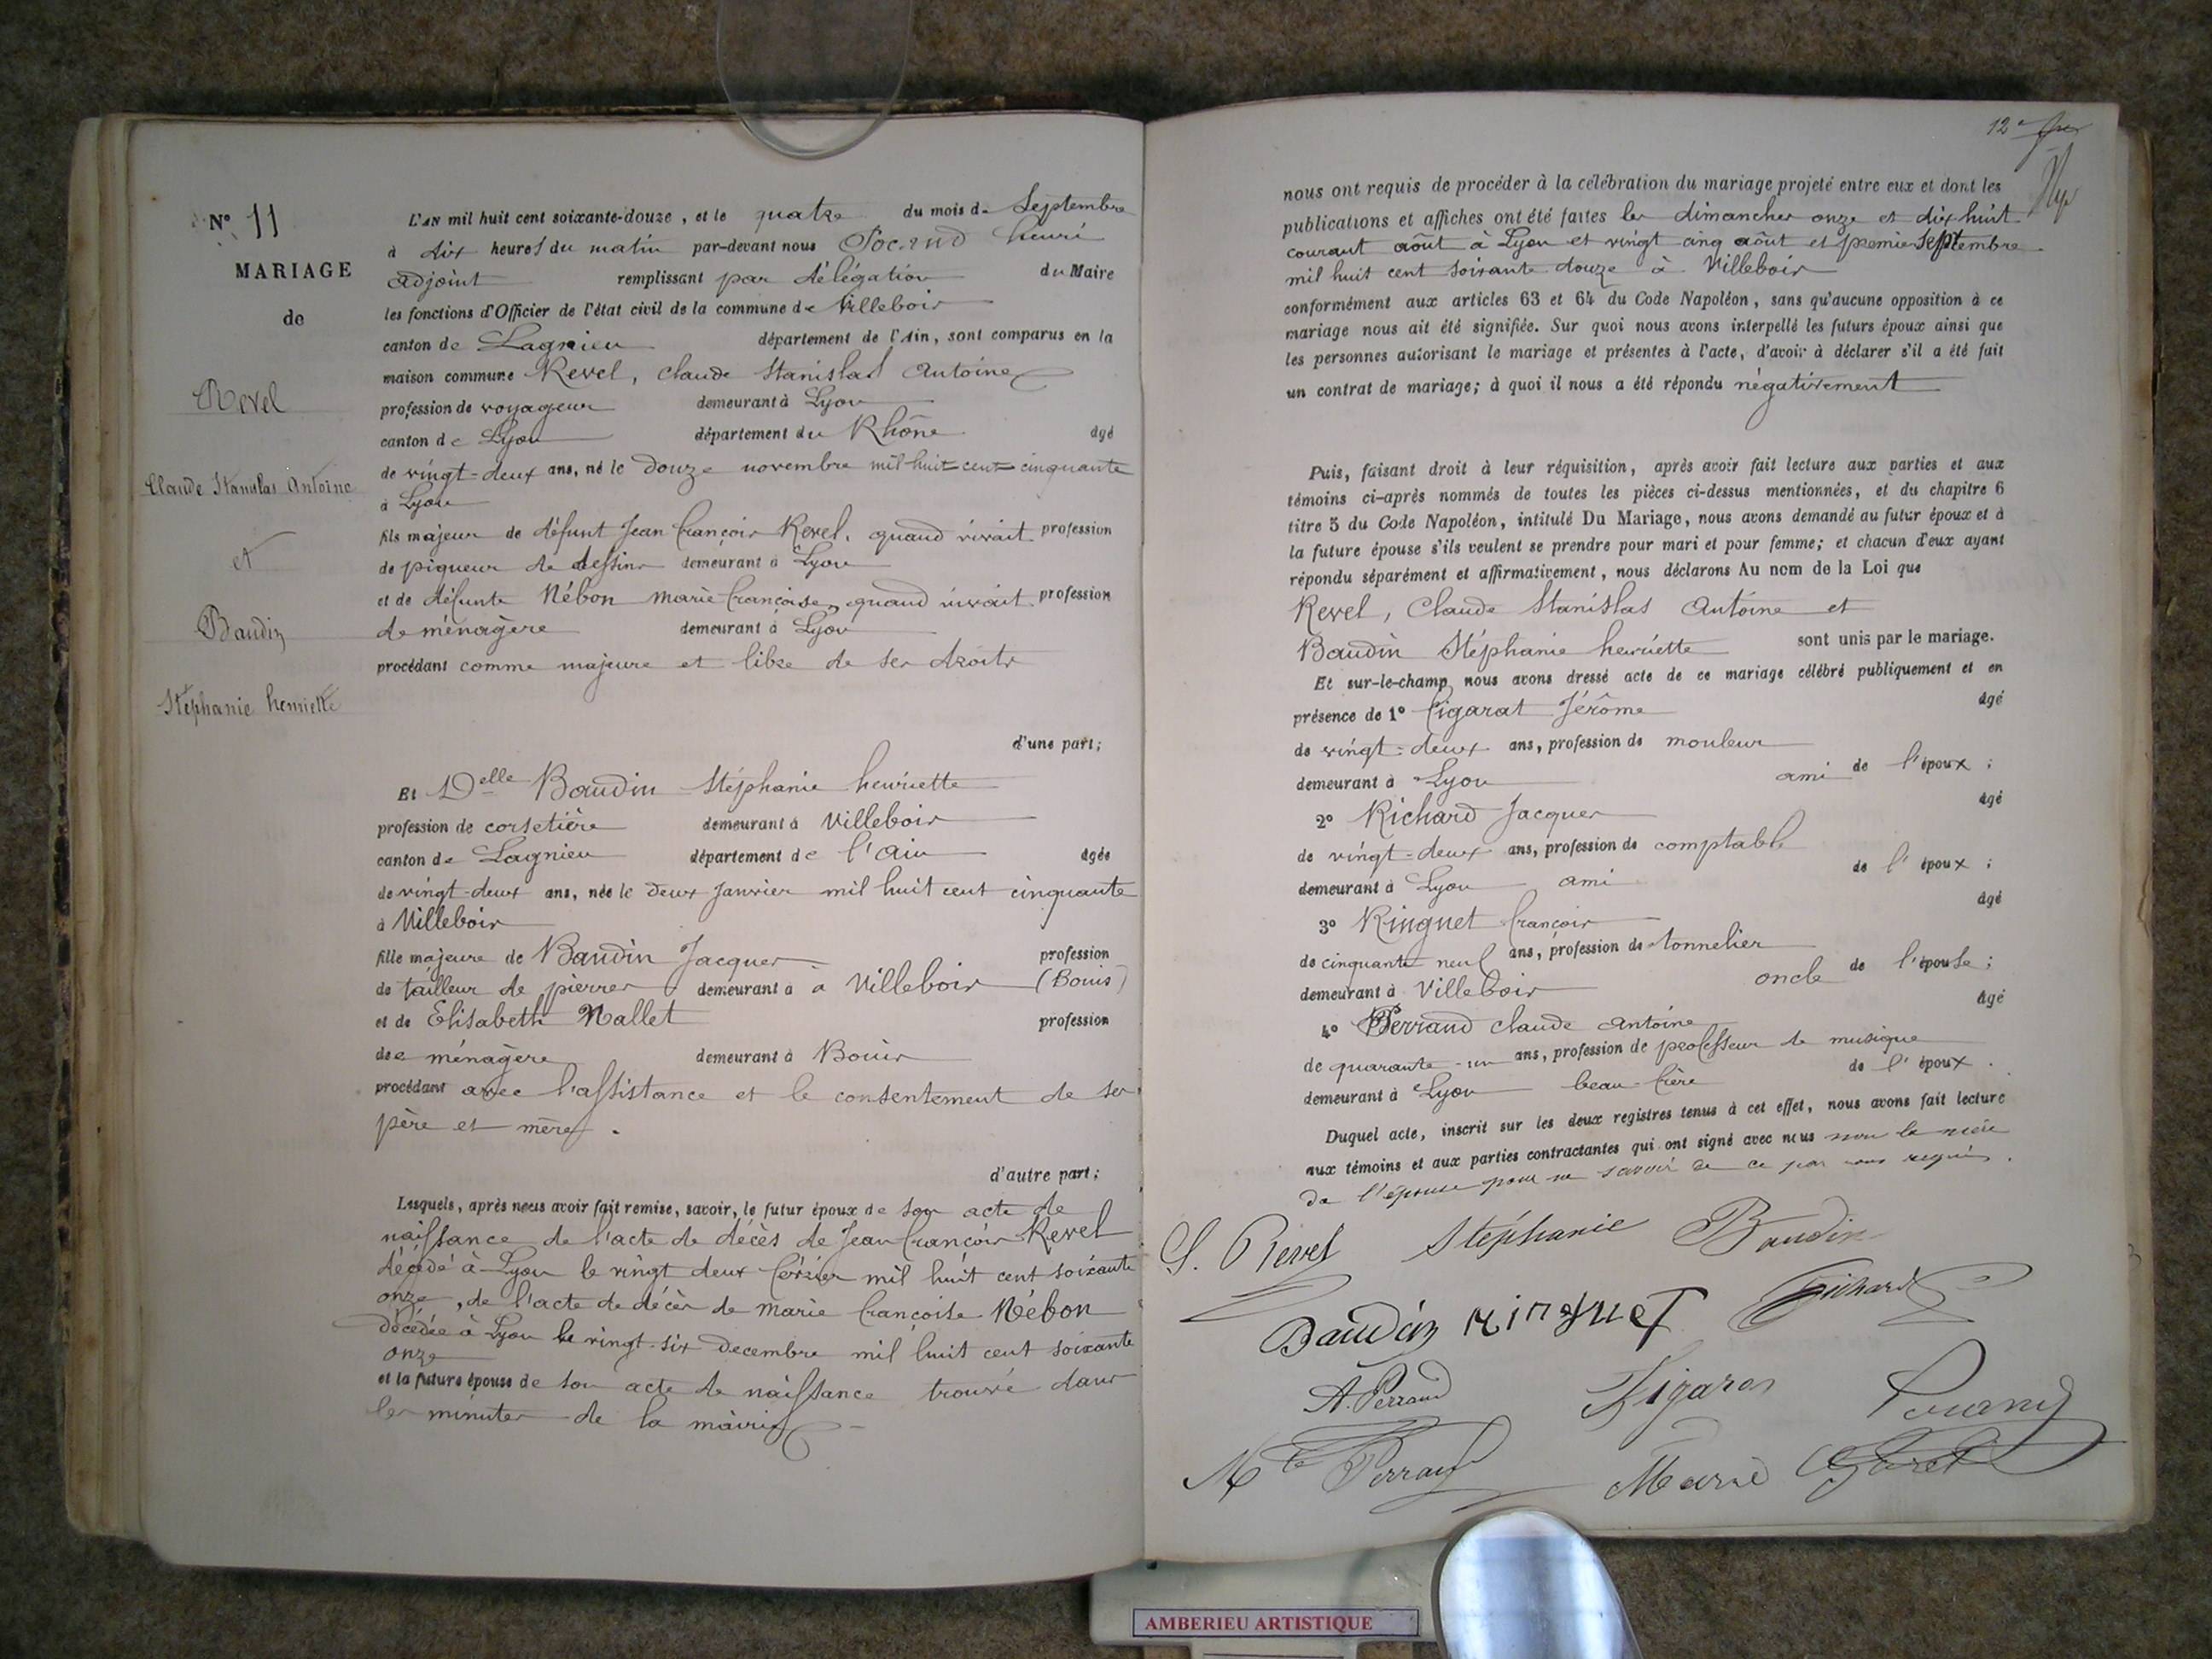 N° 11
MARIAGE
de
Revel
Claude Stanislas Antoine
et
Baudin
Stéphanie henriette
L'AN mil huit cent soixante-douze, et le quatre du mois de Septembre
à dix heures du matin par-devant nous Pocand henri
adjoint remplissant par délégation du Maire
les fonctions d'Officier de l'état civil de la commune de Villebois
canton de Lagnieu département de l'Ain, sont comparus en la
maison commune Revel, Claude Stanislas Antoine
profession de voyageur demeurant à Lyon
canton de Lyon département du Rhône âgé
de vingt-deux ans, né le douze novembre mil huit cent cinquante
à Lyon
fils majeur de défunt Jean françois Revel, quand vivait profession
de piqueur de dessins demeurant à Lyon
et de défunte Nébon marie françoise, quand vivait profession
de ménagère demeurant à Lyon
procédant comme majeure et libre de ses droits
d'une part;
Et Delle Baudin Stéphanie henriette
profession de corsetière demeurant à Villebois
canton de Lagnieu département de l'Ain âgée
de vingt-deux ans, née le deux Janvier mil huit cent cinquante
à Villebois
fille majeure de Baudin Jacques profession
de tailleur de pierres demeurant à à Villebois (Bouis)
et de Elisabeth Mallet profession
de ménagère demeurant à Bouis
procédant avec l'assistance et le consentement de ses
père et mère.
d'autre part;
Lesquels, après nous avoir fait remise, savoir, le futur époux de son acte de
naissance de l'acte de décès de Jean françois Revel
décédé à Lyon le vingt deux février mil huit cent soixante
onze, de l'acte de décès de marie françoise Nébon
décédée à Lyon le vingt-six decembre mil huit cent soixante
onze
et la future épouse de son acte de naissance trouvé dans
les minutes de la mairie
12e
nous ont requis de procéder à la célébration du mariage projeté entre eux et dont les
publications et affiches ont été faites les dimanches onze et dix-huit
courant août à Lyon et vingt cinq août et premier Septembre
mil huit cent soixante douze à Villebois
conformément aux articles 63 et 64 du Code Napoléon, sans qu'aucune opposition à ce
mariage nous ait été signifiée. Sur quoi nous avons interpellé les futurs époux ainsi que
les personnes autorisant le mariage et présentes à l'acte, d'avoir à déclarer s'il a été fait
un contrat de mariage; à quoi il nous a été répondu négativement
Puis, faisant droit à leur réquisition, après avoir fait lecture aux parties et aux
témoins ci-après nommés de toutes les pièces ci-dessus mentionnées, et du chapitre 6
titre 5 du Code Napoléon, intitulé Du Mariage, nous avons demandé au futur époux et à
la future épouse s'ils veulent se prendre pour mari et pour femme; et chacun d'eux ayant
répondu séparément et affirmativement, nous déclarons Au nom de la Loi que
Revel, Claude Stanislas Antoine et
Baudin Stéphanie henriette sont unis par le mariage.
Et sur-le-champ nous avons dressé acte de ce mariage célébré publiquement et en
présence de 1° figarat Jérôme âgé
de vingt-deux ans, profession de mouleur
demeurant à Lyon ami de l'époux;
2° Richard Jacques âgé
de vingt-deux ans, profession de comptable
demeurant à Lyon ami de l'époux;
3° Ringuet françois âgé
de cinquante neuf ans, profession de tonnelier
demeurant à Villebois oncle de l'épouse;
4° Perrand Claude Antoine âgé
de quarante-un ans, profession de professeur de musique
demeurant à Lyon beau-frère de l'époux.
Duquel acte, inscrit sur les deux registres tenus à cet effet, nous avons fait lecture
aux témoins et aux parties contractantes qui ont signé avec nous non la mère
de l'épouse pour ne savoir de ce par nous requis.
S. Revel Stéphanie Baudin
Baudin Ringuet Richard
A. Perrand
Perrand Marie
AMBERIEU ARTISTIQUE